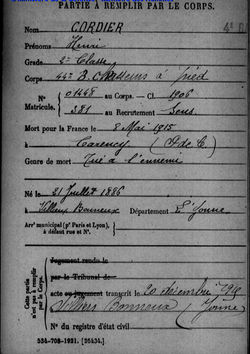 PARTIE À REMPLIR PAR LE CORPS.
Nom CORDIER
Prénoms Henri
Grade 2e Classe
Corps 44e B. Chasseurs à pied
N° 01448 au Corps. — Cl. 1906
Matricule. 381 au Recrutement Sens
Mort pour la France le 8 Mai 1915
à Carency (P. de C.)
Genre de mort Tué à l'ennemi
Né le 21 Juillet 1886
à Villiers Bonneux Département l'Yonne
Arr' municipal (p' Paris et Lyon),
à défaut rue et N°.
Cette partie n'est pas à remplir par le Corps.
Jugement rendu le
par le Tribunal de
acte ou jugement transcrit le 20 décembre 1919
à Villiers Bonneux (Yonne)
N° du registre d'état civil
534-708-1921. [26434.]